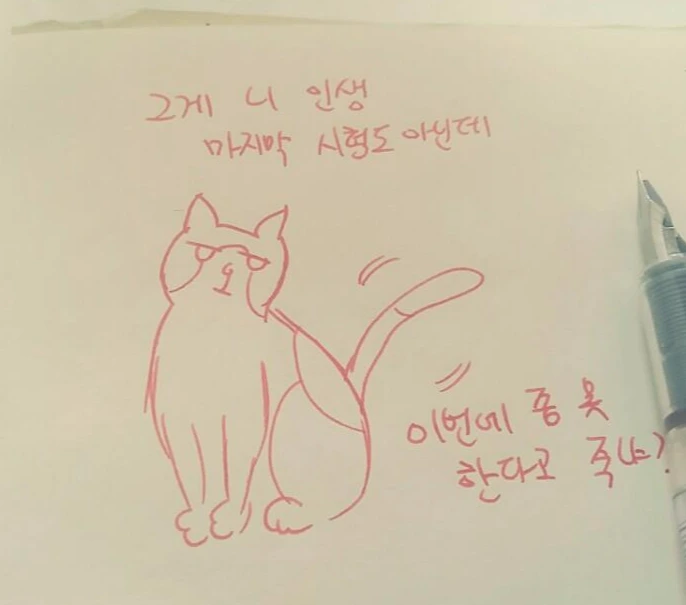 그게 니 인생
마지막 시험도 아닌데
이번에 좀 못
한다고 죽냐?